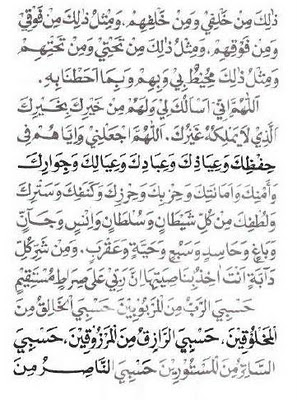 ذٰلِكَ مِنْ خَلْفِيْ وَمِنْ خَلْفِهِمْ. وَمِثْلُ ذٰلِكَ مِنْ فَوْقِيْ
وَمِنْ فَوْقِهِمْ. وَمِثْلُ ذٰلِكَ مِنْ تَحْتِيْ وَمِنْ تَحْتِهِمْ
وَمِثْلُ ذٰلِكَ مُحِيْطٌ بِيْ وَبِهِمْ وَبِمَا اَحَطْنَا بِهِ.
اَللّٰهُمَّ اِنِّى اَسْأَلُكَ لِيْ وَلَهُمْ مِنْ خَيْرِكَ بِخَيْرِكَ
الَّذِيْ لَا يَمْلِكُهُ غَيْرُكَ. اَللّٰهُمَّ اجْعَلْنِيْ وَاِيَّاهُمْ فِى
حِفْظِكَ وَعِيَاذِكَ وَعِبَادِكَ وَعِيَالِكَ وَجِوَارِكَ
وَاَمْنِكَ وَاَمَانَتِكَ وَحِزْبِكَ وَحِرْزِكَ وَكَنَفِكَ وَسَتْرِكَ
وَلُطْفِكَ مِنْ كُلِّ شَيْطَانٍ وَسُلْطَانٍ وَاِنْسٍ وَجَانٍّ
وَبَاغٍ وَحَاسِدٍ وَسَبُعٍ وَحَيَّةٍ وَعَقْرَبٍ. وَمِنْ شَرِّ كُلِّ
دَابَّةٍ اَنْتَ اٰخِذٌ بِنَاصِيَتِهَا اِنَّ رَبِّيْ عَلٰى صِرَاطٍ مُسْتَقِيْمٍ
حَسْبِيَ الرَّبُّ مِنَ الْمَرْبُوْبِيْنَ حَسْبِيَ الْخَالِقُ مِنَ
الْمَخْلُوْقِيْنَ، حَسْبِيَ الرَّازِقُ مِنَ الْمَرْزُوْقِيْنَ، حَسْبِيَ
السَّاتِرُ مِنَ الْمَسْتُوْرِيْنَ حَسْبِيَ النَّاصِرُ مِنَ